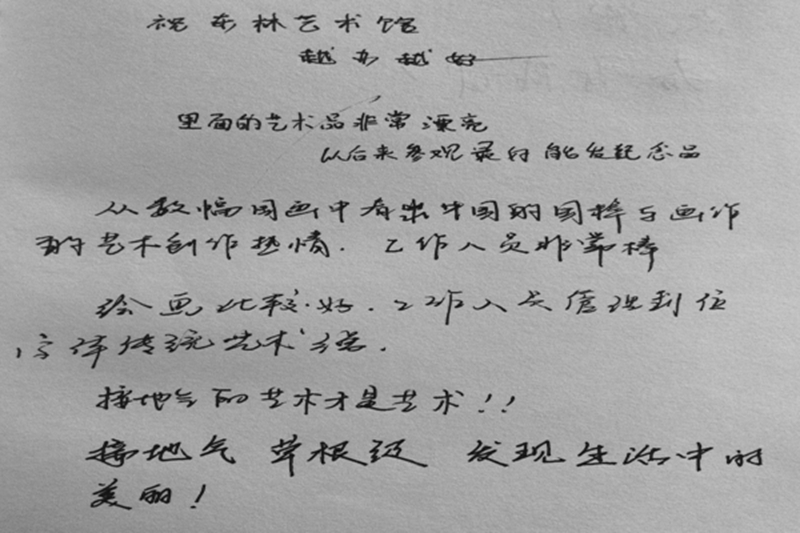 祝东林艺术馆
越办越好
里面的艺术品非常漂亮
以后来参观最好能发纪念品
从数幅国画中看出中国的国粹与画作
的艺术创作热情.工作人员非常棒
绘画比较好.工作人员管理到位
传统艺术强.
接地气的艺术才是艺术!!
接地气 草根级 发现生活中的
美丽!